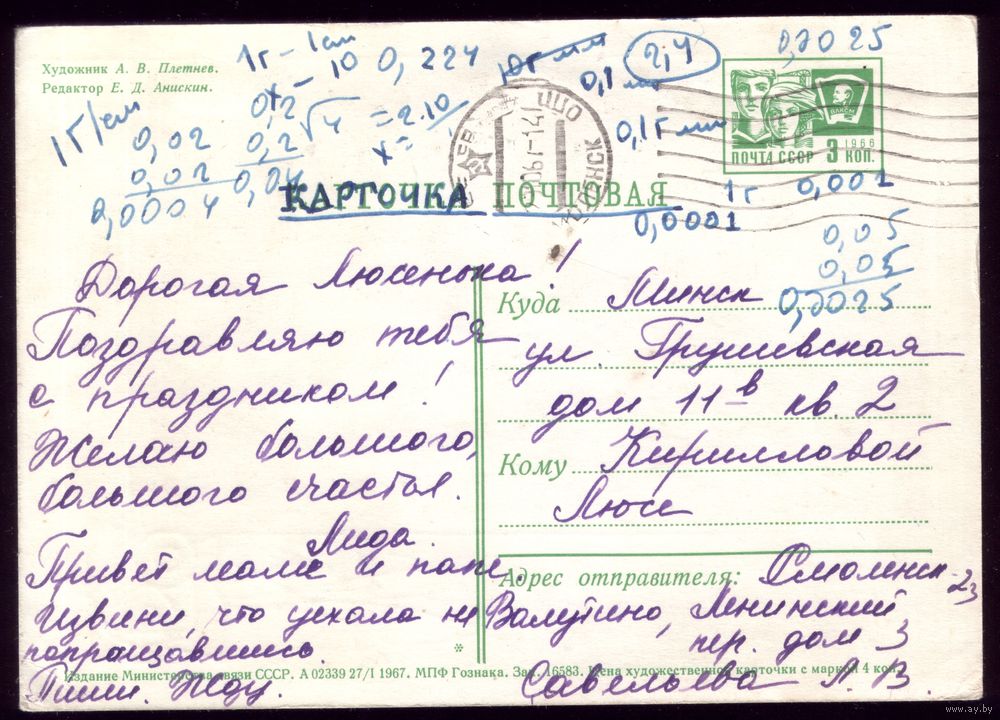 Художник А. В. Плетнев.
Редактор Е. Д. Анискин.
1г – 1см
x – 10
0,224
2,4
0,0025
1Г/см
0,02
0,02
0,2
0,2
0,04
√4
= 2.10
x =
0,1 мм
0,1г мм
1г 0,001
0,0001
0,05
0,05
0,0025
ПОЧТА СССР 3 КОП.
1966
ВЛКСМ
КАРТОЧКА ПОЧТОВАЯ
Дорогая Люсенька!
Поздравляю тебя
с праздником!
Желаю большого,
большого счастья.
Лида.
Привет маме и папе.
Извини, что уехала не
попрощавшись.
Пиши. Жду.
Куда Минск
ул. Грушевская
дом 11в кв. 2
Кому Кирилловой
Люсе
Адрес отправителя: Смоленск-23
Валутино, Ленинский
пер. дом 3
Савельева Л. В.
Издание Министерства связи СССР. А 02339 27/I 1967. МПФ Гознака. Зак. 16583. Цена художественной карточки с маркой 4 коп.
www.ay.by